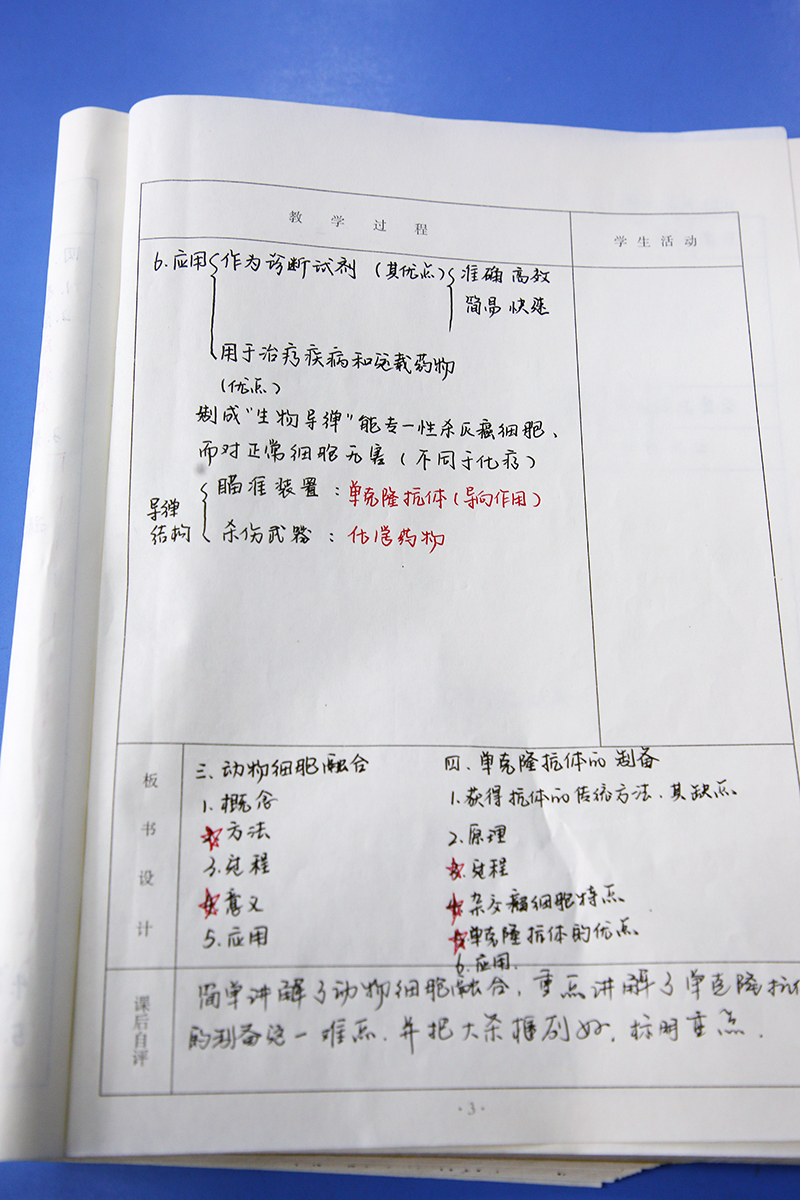 教学过程
学生活动
6.应用 作为诊断试剂 (其优点) 准确 高效
简易 快速
用于治疗疾病和运载药物
(优点)
制成"生物导弹"能专一性杀灭癌细胞、
而对正常细胞无害(不同于化疗)
导弹结构
瞄准装置:单克隆抗体(导向作用)
杀伤武器:化学药物
板书设计
三、动物细胞融合
1.概念
☆方法
3.过程
☆意义
5.应用
四、单克隆抗体的制备
1.获得抗体的传统方法、其缺点
2.原理
☆过程
☆杂交瘤细胞特点
☆单克隆抗体的优点
6.应用.
课后自评
简单讲解了动物细胞融合,重点讲解了单克隆抗体
的制备这一难点.并把大条框列好,标明重点.
·3·